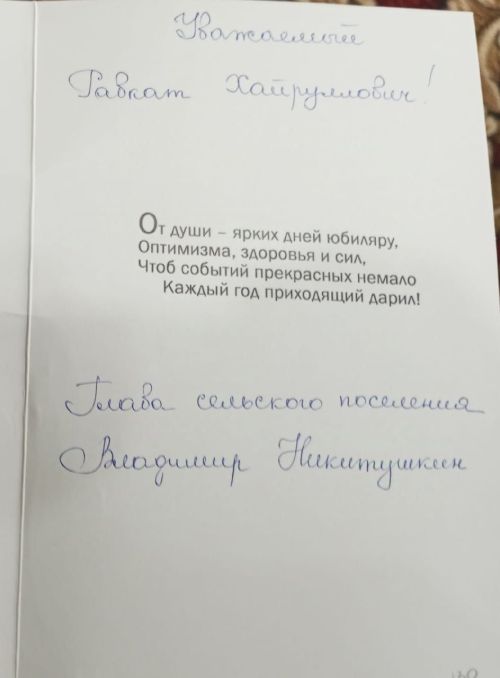 Уважаемый
Равкат Хайруллович!
От души – ярких дней юбиляру,
Оптимизма, здоровья и сил,
Чтоб событий прекрасных немало
Каждый год приходящий дарил!
Глава сельского поселения
Владимир Никитушкин